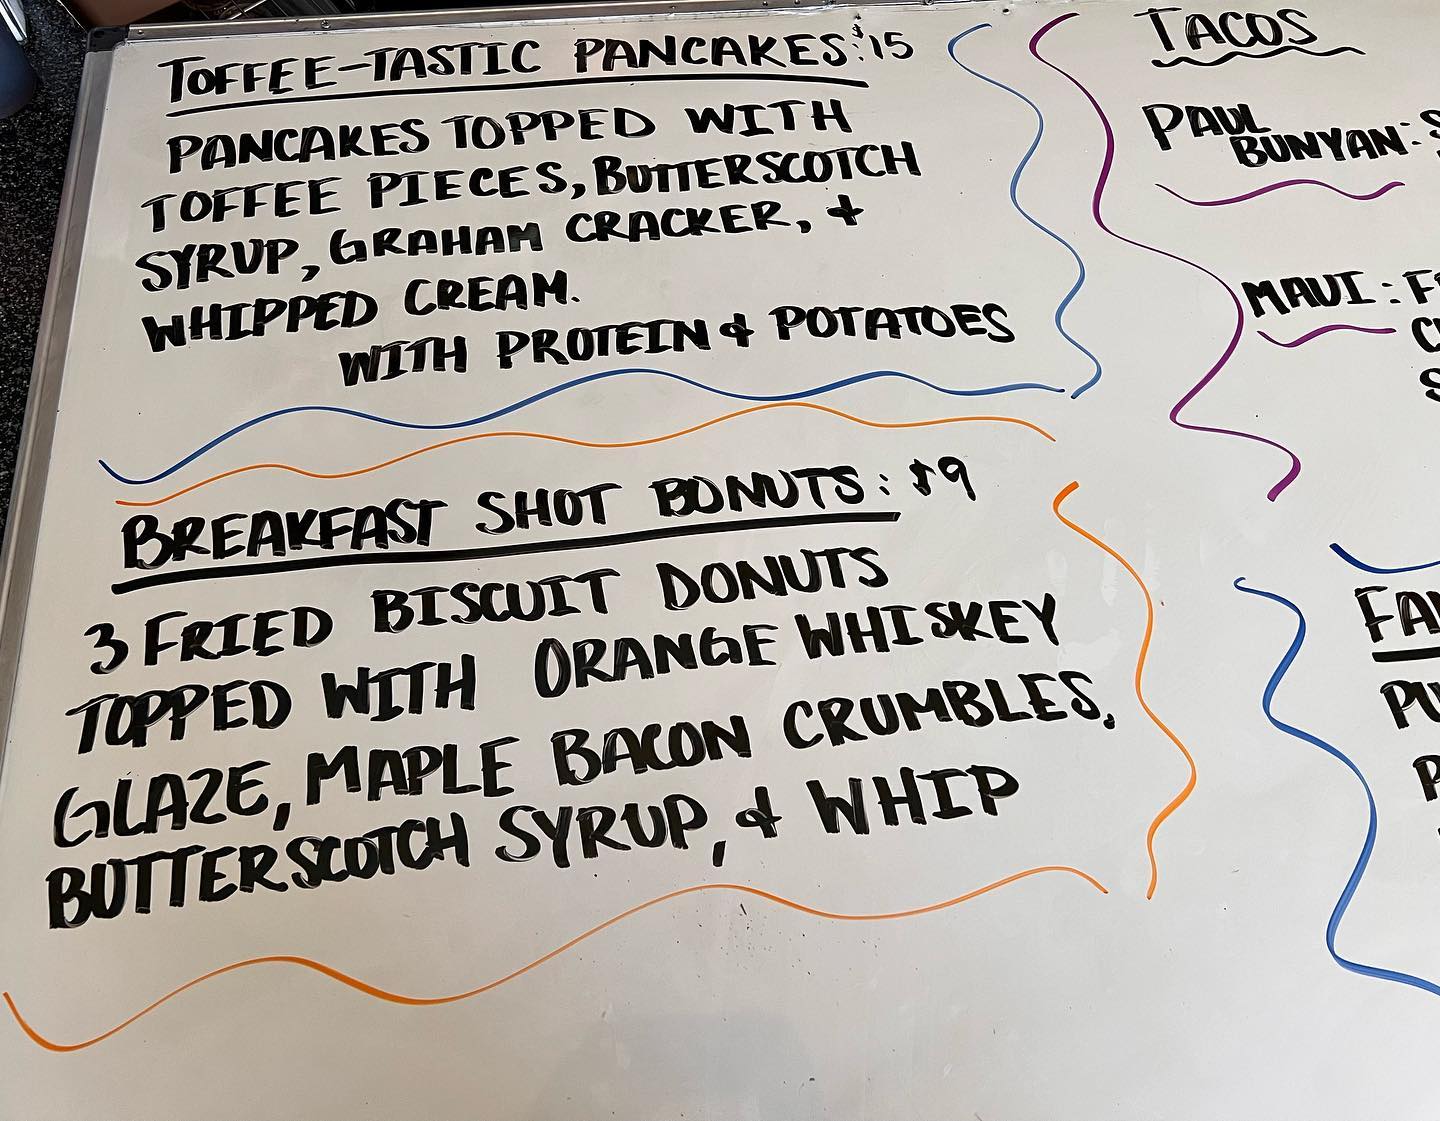 TOFFEE-TASTIC PANCAKES: $15
PANCAKES TOPPED WITH
TOFFEE PIECES, BUTTERSCOTCH
SYRUP, GRAHAM CRACKER, &
WHIPPED CREAM.
WITH PROTEIN & POTATOES
BREAKFAST SHOT BONUTS: $9
3 FRIED BISCUIT DONUTS
TOPPED WITH ORANGE WHISKEY
GLAZE, MAPLE BACON CRUMBLES,
BUTTERSCOTCH SYRUP, & WHIP
TACOS
PAUL
BUNYAN:
MAUI: